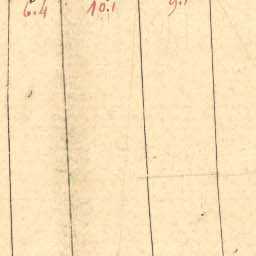 6.4 10.1 9.1